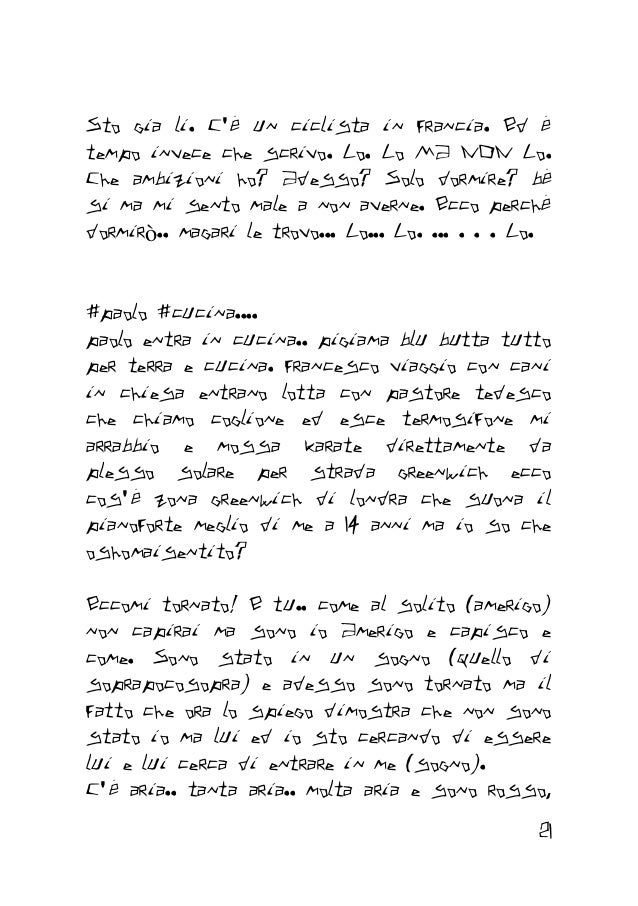 Sto gia li. C'è un ciclista in Francia. Ed è
tempo invece che scrivo. Lo. Lo MA NON Lo.
Che ambizioni ho? Adesso? Solo dormire? bè
si ma mi sento male a non averne. Ecco perchè
dormirò.. magari le trovo... Lo... Lo. ... . . . Lo.
#paolo #cucina....
paolo entra in cucina.. pigiama blu butta tutto
per terra e cucina. Francesco viaggio con cani
in chiesa entrano lotta con pastore tedesco
che chiamo coglione ed esce termosifone mi
arrabbio e mossa karate direttamente da
plesso solare per strada greenwich ecco
cos'è zona greenwich di londra che suona il
pianoforte meglio di me a 14 anni ma io so che
oshomaisentito?
Eccomi tornato! E tu.. come al solito (amerigo)
non capirai ma sono io Amerigo e capisco e
come. Sono stato in un sogno (quello di
soprapocosopra) e adesso sono tornato ma il
fatto che ora lo spiego dimostra che non sono
stato io ma lui ed io sto cercando di essere
lui e lui cerca di entrare in me (sogno).
C'è aria.. tanta aria.. molta aria e sono rosso,
21